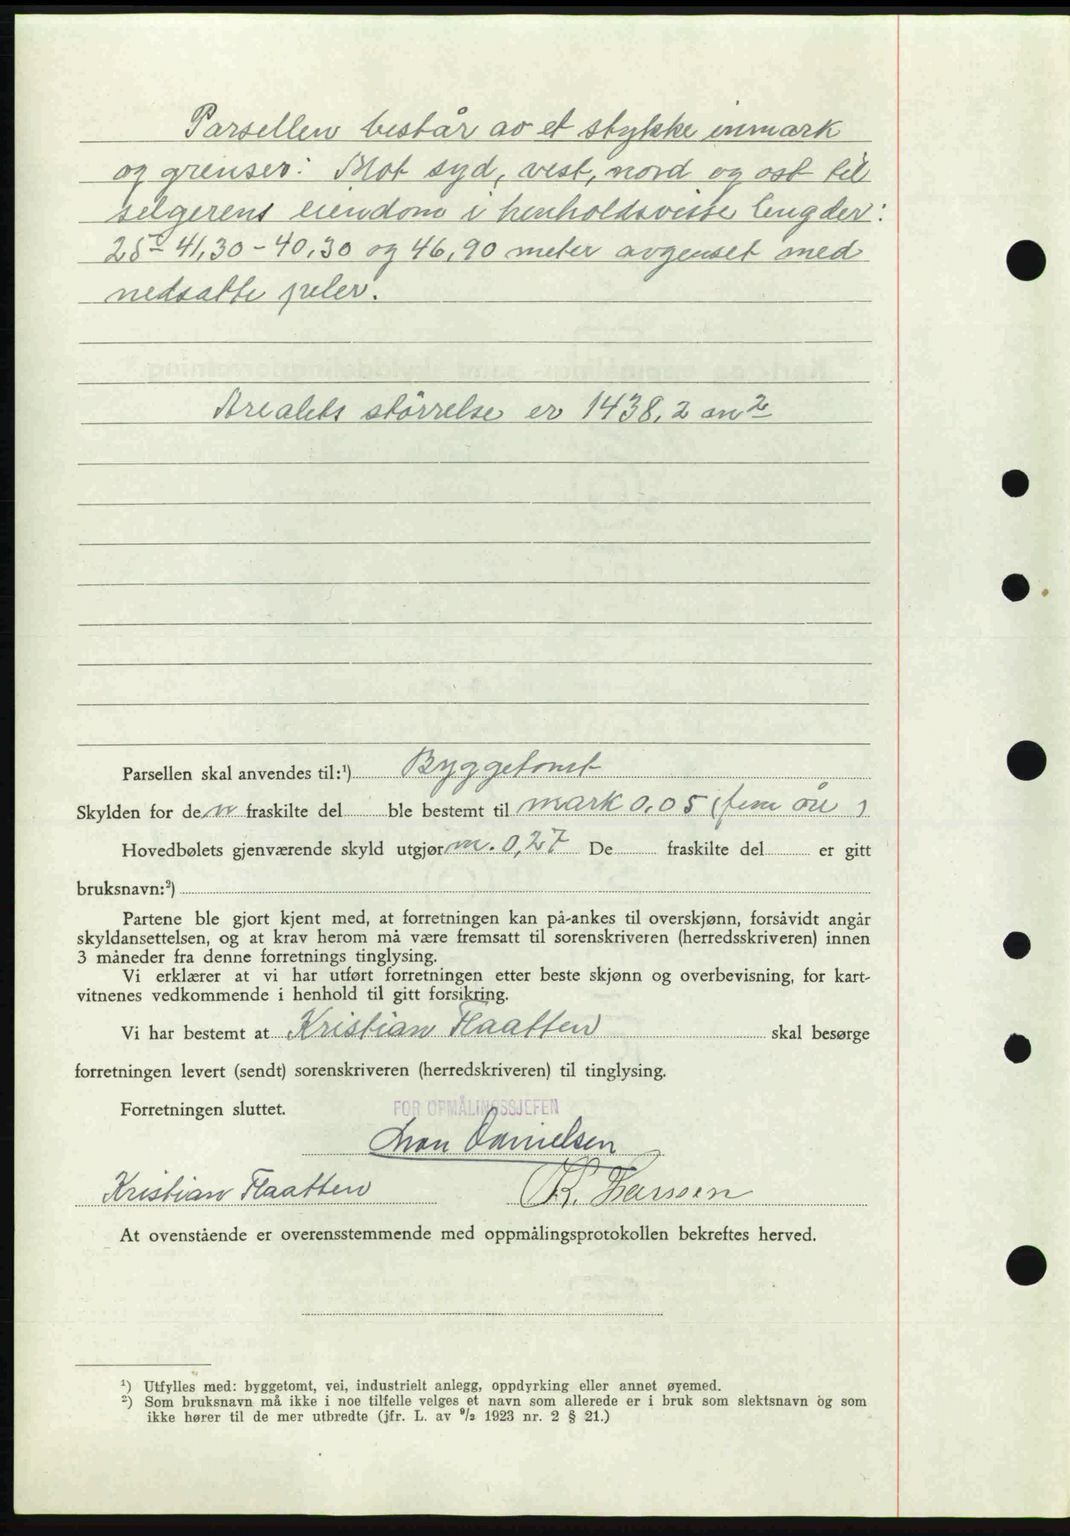 Parsellen består av et stykke inmark
og grenser: Mot syd, vest, nord og ost til
selgerens eiendom i henholdsvisse lengder:
41,30 - 40,30 og 46,90 meter avgenset med
nedsatte peler.
Arealets störrelse er 1438,2 m²
Parsellen skal anvendes til:¹) Byggetomt
Skylden for den fraskilte del ble bestemt til mark 0,05 (fem öre )
Hovedbølets gjenværende skyld utgjør m. 0,27 De fraskilte del er gitt
bruksnavn:²)
Partene ble gjort kjent med, at forretningen kan på-ankes til overskjønn, forsåvidt angår
skyldansettelsen, og at krav herom må være fremsatt til sorenskriveren (herredsskriveren) innen
3 måneder fra denne forretnings tinglysing.
Vi erklærer at vi har utført forretningen etter beste skjønn og overbevisning, for kart-
vitnenes vedkommende i henhold til gitt forsikring.
Vi har bestemt at Kristian Flaatten skal besørge
forretningen levert (sendt) sorenskriveren (herredskriveren) til tinglysing.
Forretningen sluttet.
FOR OPMÅLINGSSJEFEN
Danielsen
Kristian Flaatten K. Larssen
At ovenstående er overensstemmende med oppmålingsprotokollen bekreftes herved.
¹) Utfylles med: byggetomt, vei, industrielt anlegg, oppdyrking eller annet øyemed.
²) Som bruksnavn må ikke i noe tilfelle velges et navn som allerede er i bruk som slektsnavn og som
ikke hører til de mer utbredte (jfr. L. av ⁹/₂ 1923 nr. 2 § 21.)